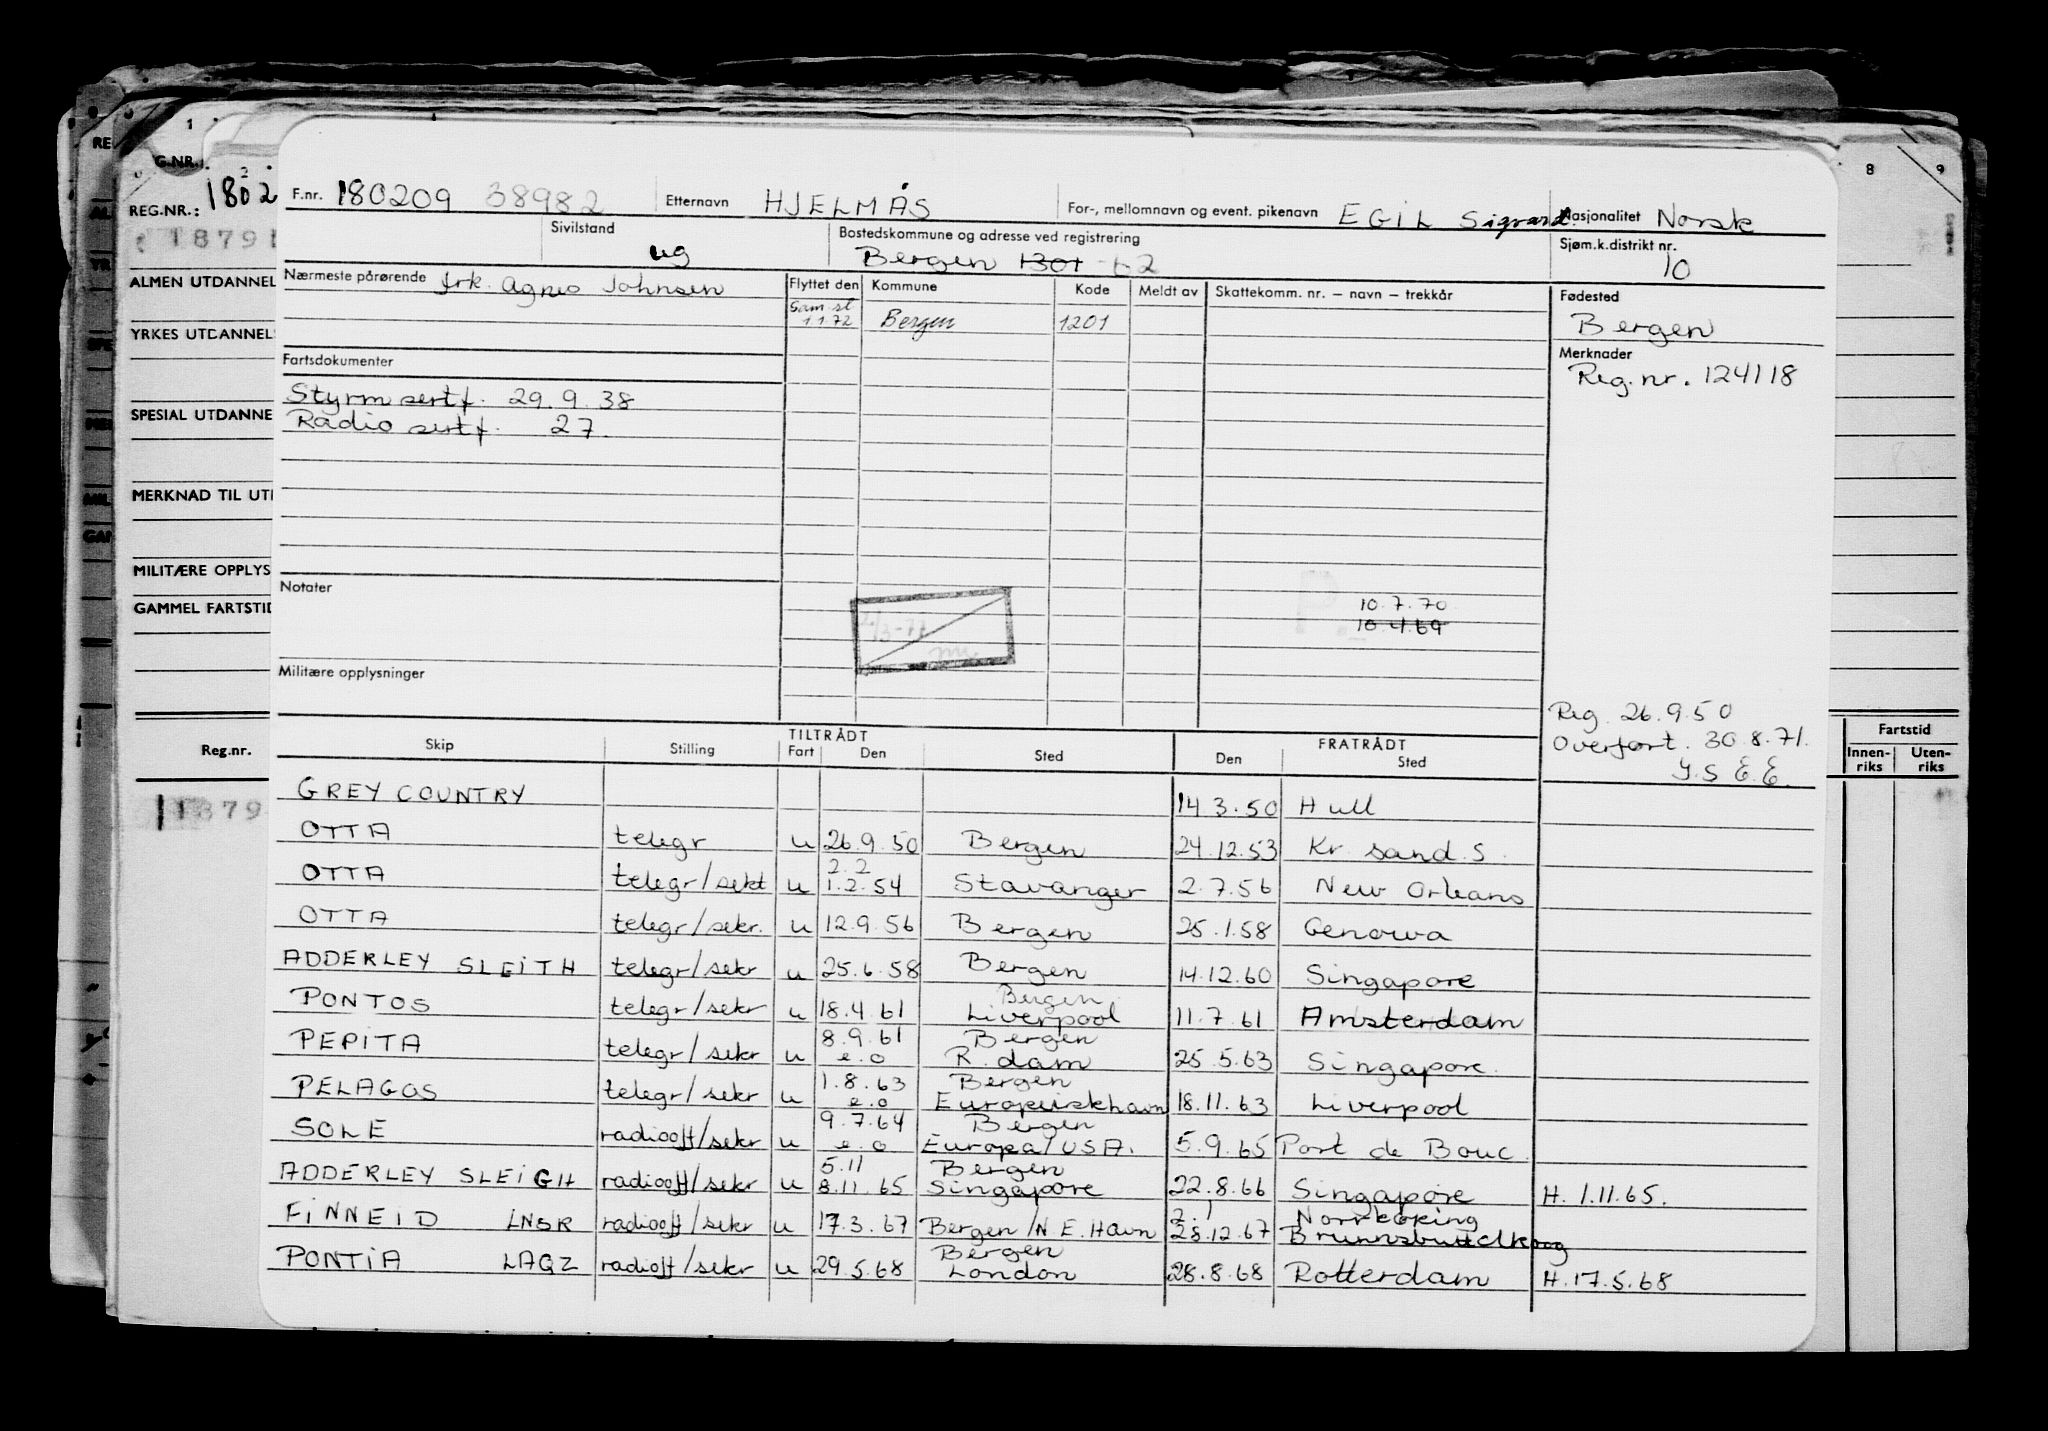 1 2 8 9
RE
G.NR.
REG.NR.: 1802
1879
ALMEN UTDANNEL
YRKES UTDANNELS
SPESIAL UTDANNE
MERKNAD TIL UTI
MILITÆRE OPPLYS
GAMMEL FARTSTID
Reg.nr.
1879
F.nr. 180209 38982 Etternavn HJELMÅS For-, mellomnavn og event. pikenavn EGIL Sigvard. Nasjonalitet Norsk
Sivilstand ug Bostedskommune og adresse ved registrering Bergen 1301 -62 Sjøm.k.distrikt nr. 10
Nærmeste pårørende frk. Agnes Johnsen Flyttet den Kommune Kode Meldt av Skattekomm. nr. – navn – trekkår Fødested
Sam.st 1.1.72 Bergen 1201 Bergen
Fartsdokumenter Merknader
Reg.nr. 124118
Styrm sertf. 29.9.38
Radio sertf. 27.
Notater
10.7.70
10.4.69
/3-77
Militære opplysninger
Reg. 26.9.50
Overført. 30.8.71.
Skip Stilling TILTRÅDT Fart Den Sted FRATRÅDT Den Sted
Fartstid
Innen-riks Uten-riks
GREY COUNTRY 14.3.50 Hull
OTTA telegr u 26.9.50 Bergen 24.12.53 Kr. sand. S.
OTTA telegr/sekt u 2.2 1.2.54 Stavanger 2.7.56 New Orleans
OTTA telegr/sekr. u 12.9.56 Bergen 25.1.58 Genova
ADDERLEY SLEITH telegr/sekr u 25.6.58 Bergen 14.12.60 Singapore
PONTOS telegr/sekr u 18.4.61 Bergen Liverpool 11.7.61 Amsterdam
PEPITA telegr/sekr u 8.9.61 e.o Bergen R.dam 25.5.63 Singapore.
PELAGOS telegr/sekr u 1.8.63 e.o Bergen Europeiskhavn 18.11.63 Liverpool
SOLE radiooff/sekr u 9.7.64 e.o Bergen Europa/USA. 5.9.65 Port de Bouc
ADDERLEY SLEIGH radiooff/sekr u 5.11 8.11.65 Bergen Singapore 22.8.66 Singapore H. 1.11.65.
FINNEID LNSR radiooff/sekr u 17.3.67 Bergen/N E. Havn 2.1 28.12.67 Norrkøping Brunnsbuttelkoog
PONTIA LAQZ radiooff/sekr u 29.5.68 Bergen London 28.8.68 Rotterdam H. 17.5.68